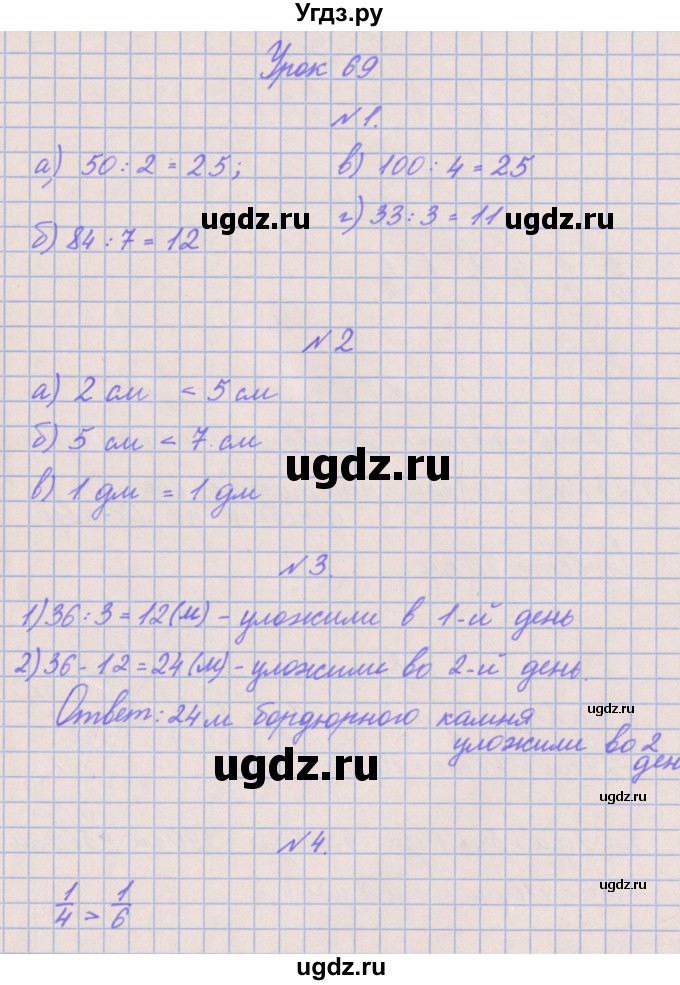 Угдз.ру
Урок 69
№1.
а) 50 : 2 = 25; в) 100 : 4 = 25
ugdz.ru г) 33 : 3 = 11 ugdz.ru
б) 84 : 7 = 12
№2
а) 2 см < 5 см
б) 5 см < 7 см
ugdz.ru
в) 1 дм = 1 дм
№3.
1) 36 : 3 = 12 (м) - уложили в 1-й день
2) 36 - 12 = 24 (м) - уложили во 2-й день.
Ответ: 24 м бордюрного камня
ugdz.ru
уложили во 2
ден
ugdz.ru
ugdz.ru
№4.
1/4 > 1/6
ugdz.ru
ugdz.ru